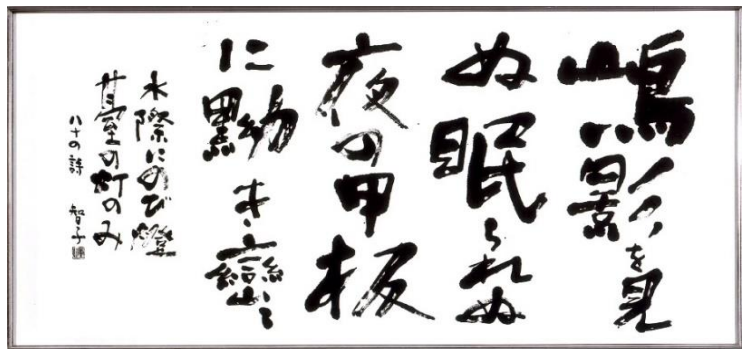 嶋影を見
ぬ眠られぬ
夜の甲板
に黝き巒
水際にのび燈
の灯のみ
八十の詩 智子